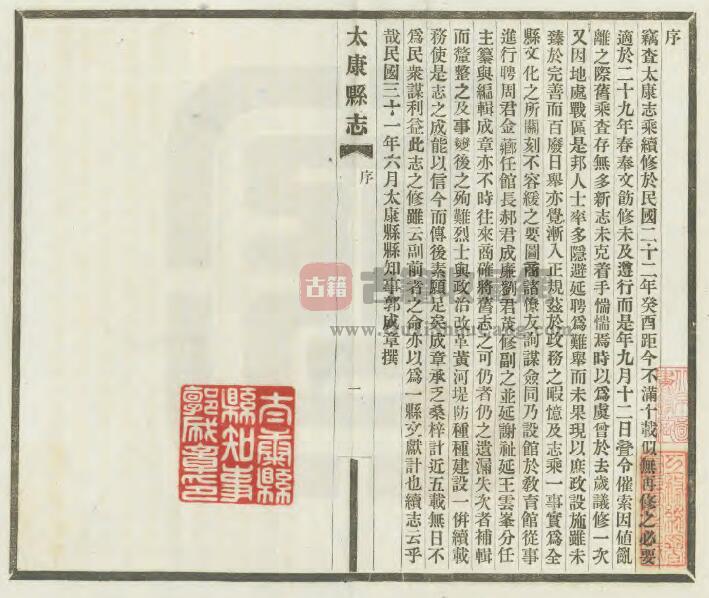 序
竊查太康志乘續修於民國二十二年癸酉距今不滿十載似無再修之必要
適於二十九年春奉文飭修未及遵行而是年九月十二日詧令催索因値亂
離之際舊乘查存無多新志未克着手惴惴焉時以爲虞曾於去歲議修一次
又因地處戰區是邦人士率多隱避延聘爲難舉而未果現以庶政設施雖未
臻於完善而百廢日舉亦覺漸入正規爰於政務之暇憶及志乘一事實爲全
縣文化之所關刻不容緩之要圖商諸僚友詢謀僉同乃設館於敎育館從事
進行聘周君金 任館長郝君成廉劉君茂修副之並延謝祉延王雲峯分任
主纂與編輯成章亦不時往來商確將舊志之可仍者仍之遺漏失次者補輯
而釐整之及事變後之殉難烈士與政治改革黃河堤防種種建設一倂續載
務使是志之成能以信今而傳後素願足矣成章承乏桑梓計近五載無日不
爲民衆謀利益此志之修雖云副前者之命亦以爲一縣文獻計也續志云乎
哉民國三十一年六月太康縣縣知事郭成章撰
太康縣志
序
一
太康縣
縣知事
郭成章印
古籍
www.